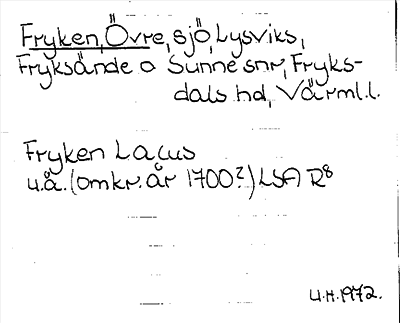 Fryken, Övre, sjö, Lysviks,
Fryksände o Sunne snr, Fryks-
dals hd, Värml.l.
Fryken Lacus
u.å. (omkr. år 1700?) LSA R8
U.H. 1972.